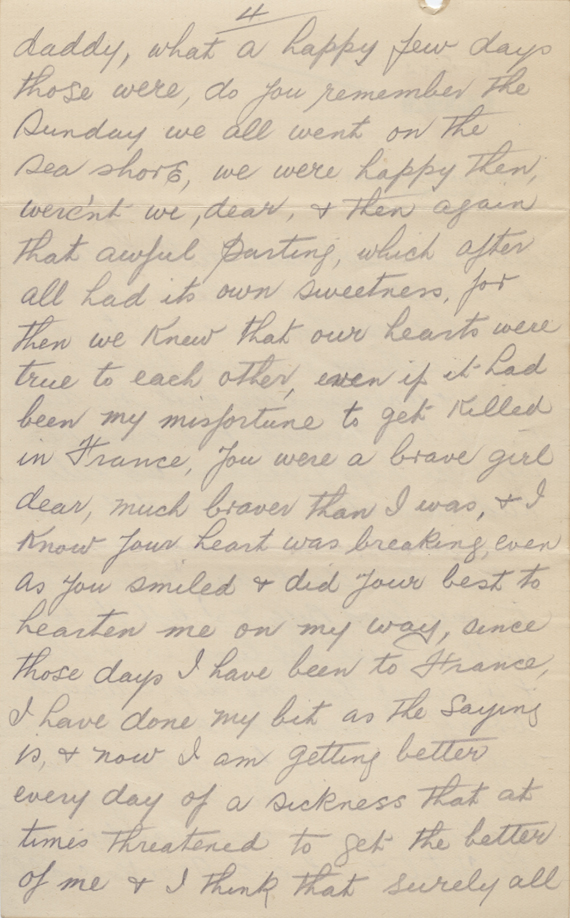 4
daddy, what a happy few days
those were, do you remember the
Sunday we all went on the
sea shore, we were happy then,
were'nt we, dear, & then again
that awful Parting, which after
all had its own sweetness, for
then we knew that our hearts were
true to each other, even if it had
been my misfortune to get killed
in France, you were a brave girl
dear, much braver than I was, & I
know your heart was breaking, even
as you smiled & did your best to
hearten me on my way, since
those days I have been to France,
I have done my bit as the saying
is, & now I am getting better
every day of a sickness that at
times threatened to get the better
of me & I think that surely all